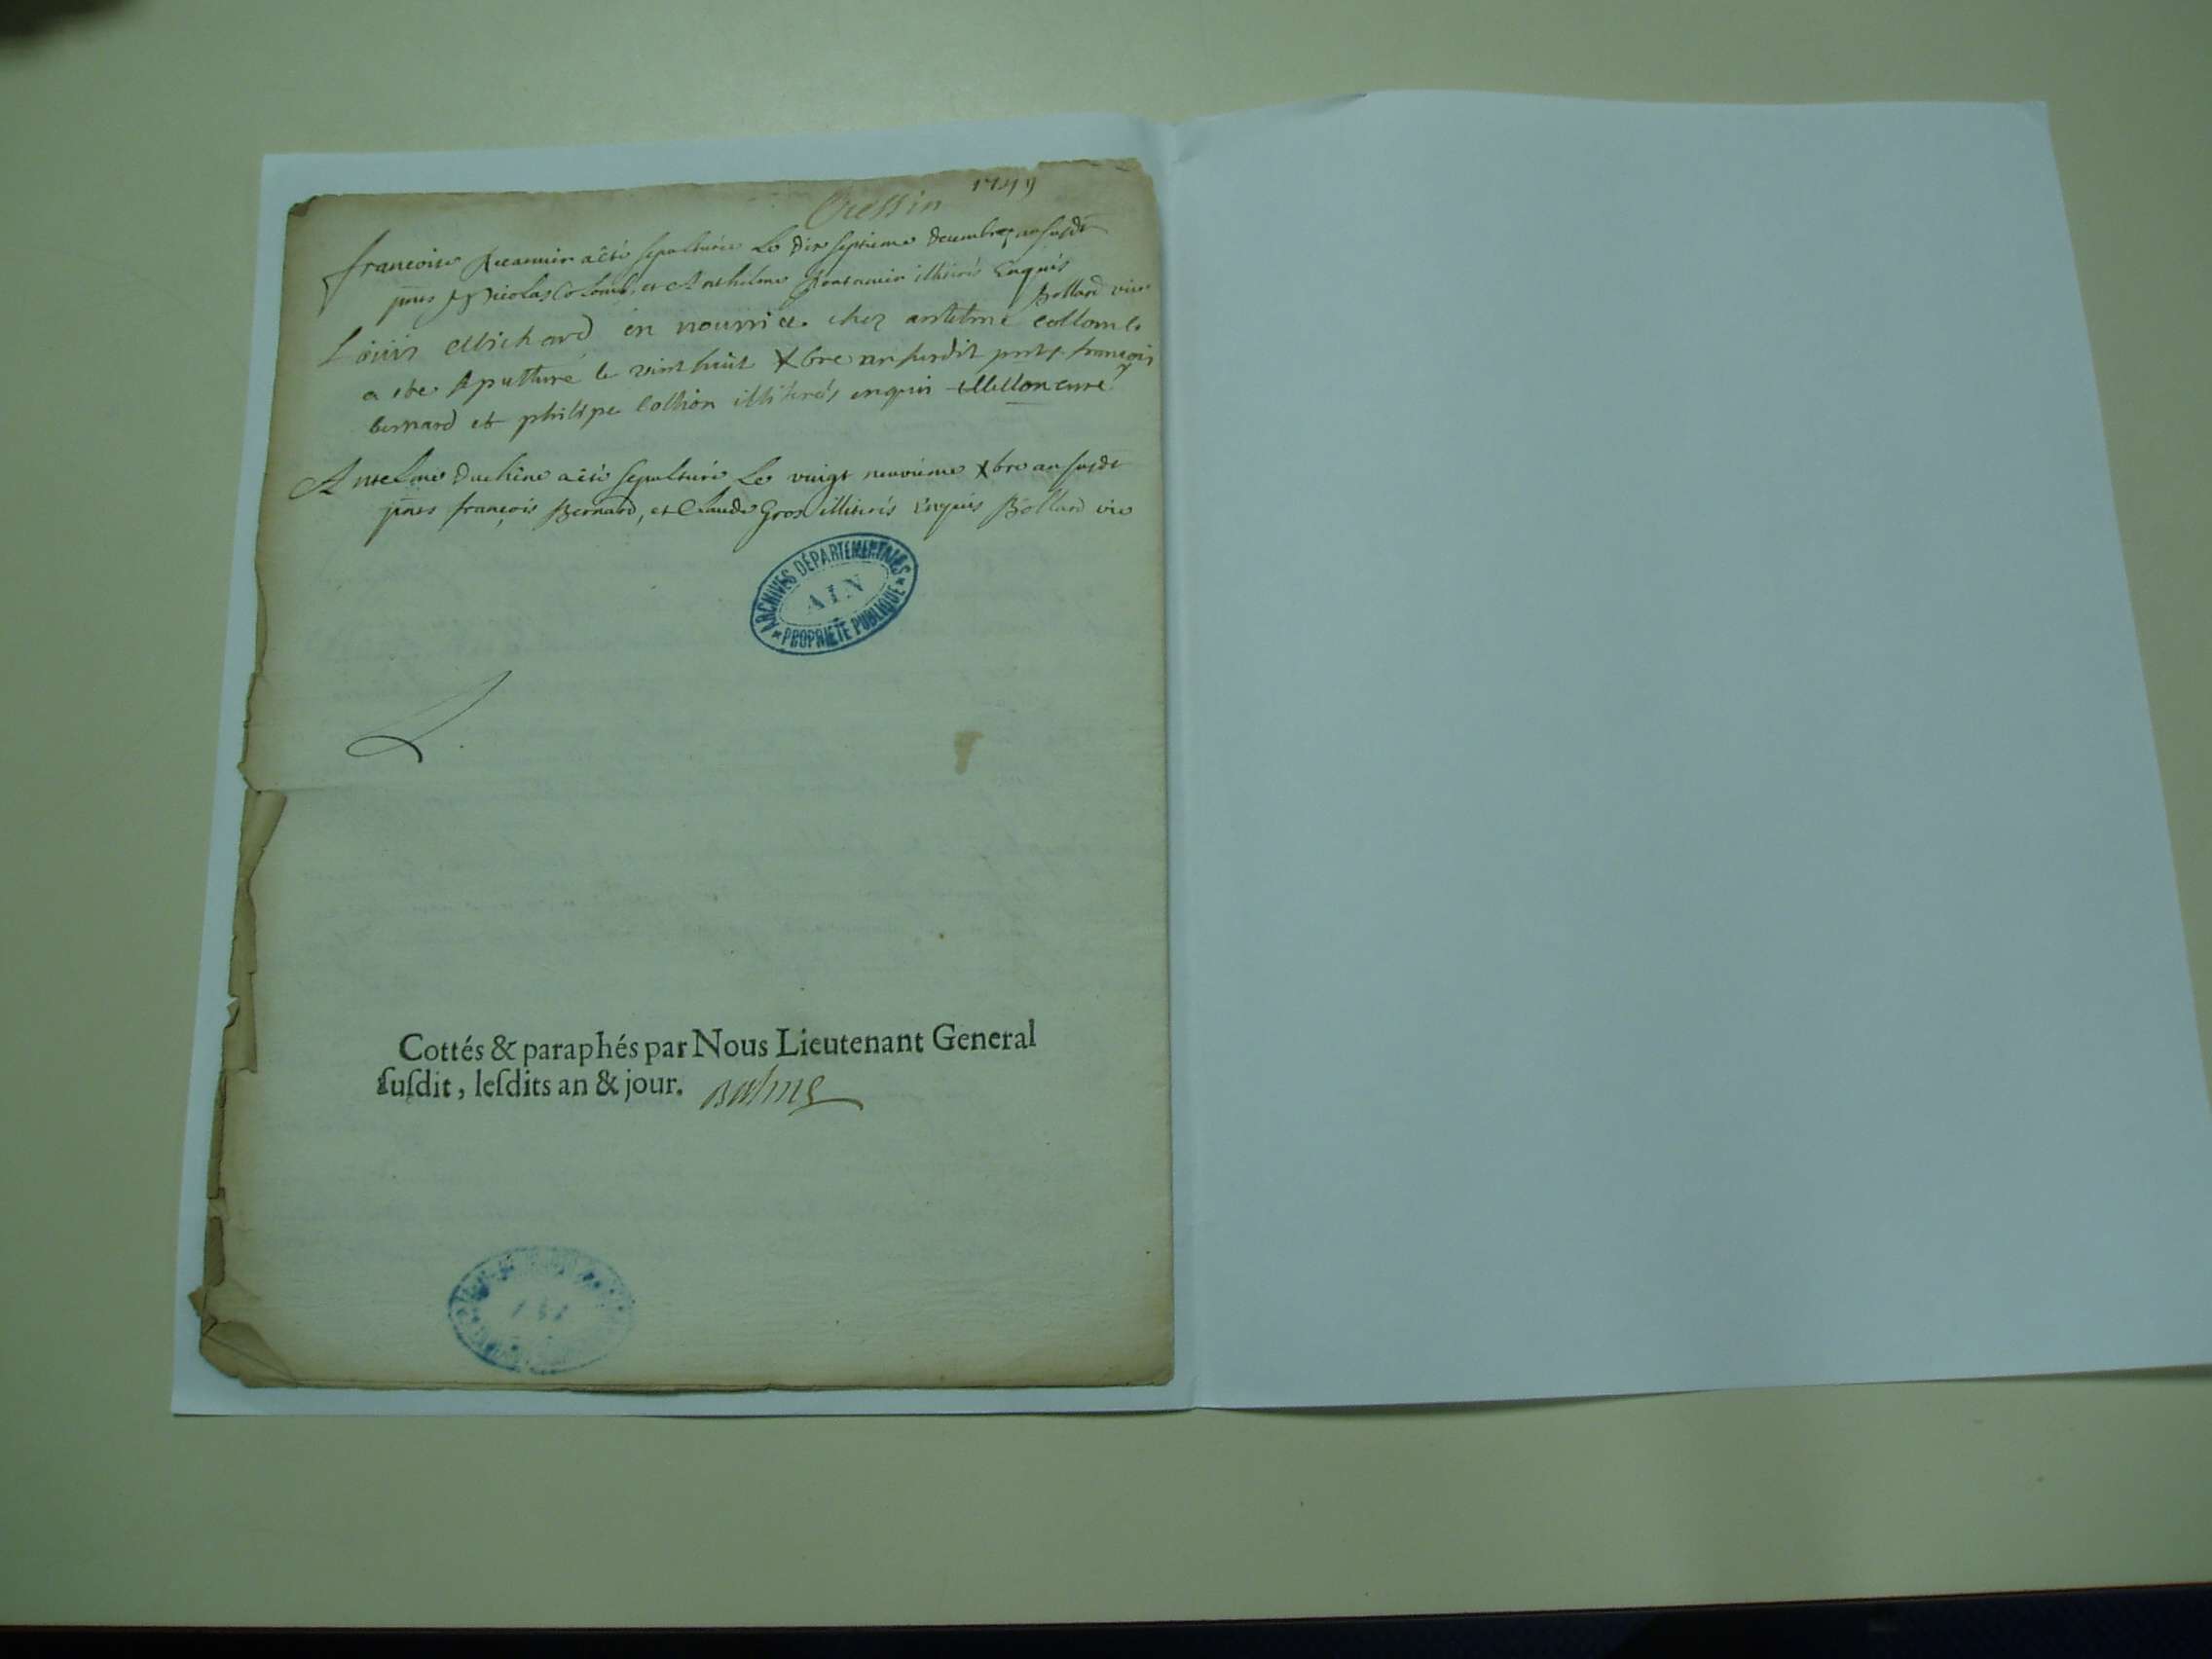 Cressin 1749
francoise a été sepulturée Le dix septieme decembre an susdt
pnts Nicolas Colomb, et Anthelme illiterés Enquis
Bollard vic
Loüis Michard en nourrice chez antelme collomb
a ete sepulturé le vint huit Xbre an susdit pnts françois
bernard et philipe illiterés enquis Mellon curé
Antelme Duchêne a été sepulturé Le vingt neuvieme Xbre an susdt
pnts françois Bernard, et Claude Gros illiterés Enquis Bollard vic
ARCHIVES DÉPARTEMENTALES
AIN
* PROPRIÉTÉ PUBLIQUE *
Cottés & paraphés par Nous Lieutenant General
susdit, lesdits an & jour. Balme